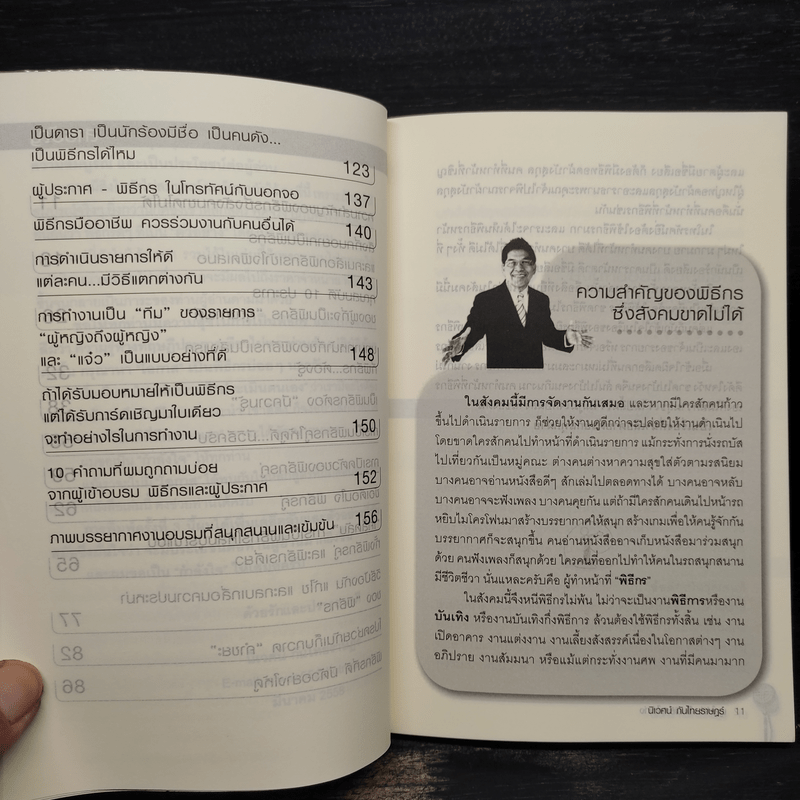 เป็นดารา เป็นนักร้องมีชื่อ เป็นคนดัง...
เป็นพิธีกรได้ไหม 123
ผู้ประกาศ - พิธีกร ในโทรทัศน์กับนอกจอ 137
พิธีกรมืออาชีพ ควรร่วมงานกับคนอื่นได้ 140
การดำเนินรายการให้ดี
แต่ละคน...มีวิธีแตกต่างกัน 143
การทำงานเป็น "ทีม" ของรายการ
"ผู้หญิงถึงผู้หญิง"
และ "แจ๋ว" เป็นแบบอย่างที่ดี 148
ถ้าได้รับมอบหมายให้เป็นพิธีกร
แต่ได้รับการ์ดเชิญมาใบเดียว
จะทำอย่างไรในการทำงาน 150
10 คำถามที่ผมถูกถามบ่อย
จากผู้เข้าอบรม พิธีกรและผู้ประกาศ 152
ภาพบรรยากาศงานอบรมที่สนุกสนานและเข้มข้น 156
ความสำคัญของพิธีกร
ซึ่งสังคมขาดไม่ได้
ในสังคมนี้มีการจัดงานกันเสมอ และหากมีใครสักคนก้าว
ขึ้นไปดำเนินรายการ ก็ช่วยให้งานดูดีกว่าจะปล่อยให้งานดำเนินไป
โดยขาดใครสักคนไปทำหน้าที่ดำเนินรายการ แม้กระทั่งการนั่งรถบัส
ไปเที่ยวกันเป็นหมู่คณะ ต่างคนต่างหาความสุขใส่ตัวตามรสนิยม
บางคนอาจอ่านหนังสือดีๆ สักเล่มไปตลอดทางได้ บางคนอาจหลับ
บางคนอาจจะฟังเพลง บางคนคุยกัน แต่ถ้ามีใครสักคนเดินไปหน้ารถ
หยิบไมโครโฟนมาสร้างบรรยากาศให้สนุก สร้างเกมเพื่อให้คนรู้จักกัน
บรรยากาศก็จะสนุกขึ้น คนอ่านหนังสืออาจเก็บหนังสือมาร่วมสนุก
ด้วย คนฟังเพลงก็สนุกด้วย ใครคนที่ออกไปทำให้คนในรถสนุกสนาน
มีชีวิตชีวา นั่นแหละครับคือ ผู้ทำหน้าที่ "พิธีกร"
ในสังคมนี้จึงหนีพิธีกรไม่พ้น ไม่ว่าจะเป็นงานพิธีการหรืองาน
บันเทิง หรืองานบันเทิงกึ่งพิธีการ ล้วนต้องใช้พิธีกรทั้งสิ้น เช่น งาน
เปิดอาคาร งานแต่งงาน งานเลี้ยงสังสรรค์เนื่องในโอกาสต่างๆ งาน
อภิปราย งานสัมมนา หรือแม้แต่กระทั่งงานศพ งานที่มีคนมามาก
นิเวศน์ กันไทยราษฎร์ 11